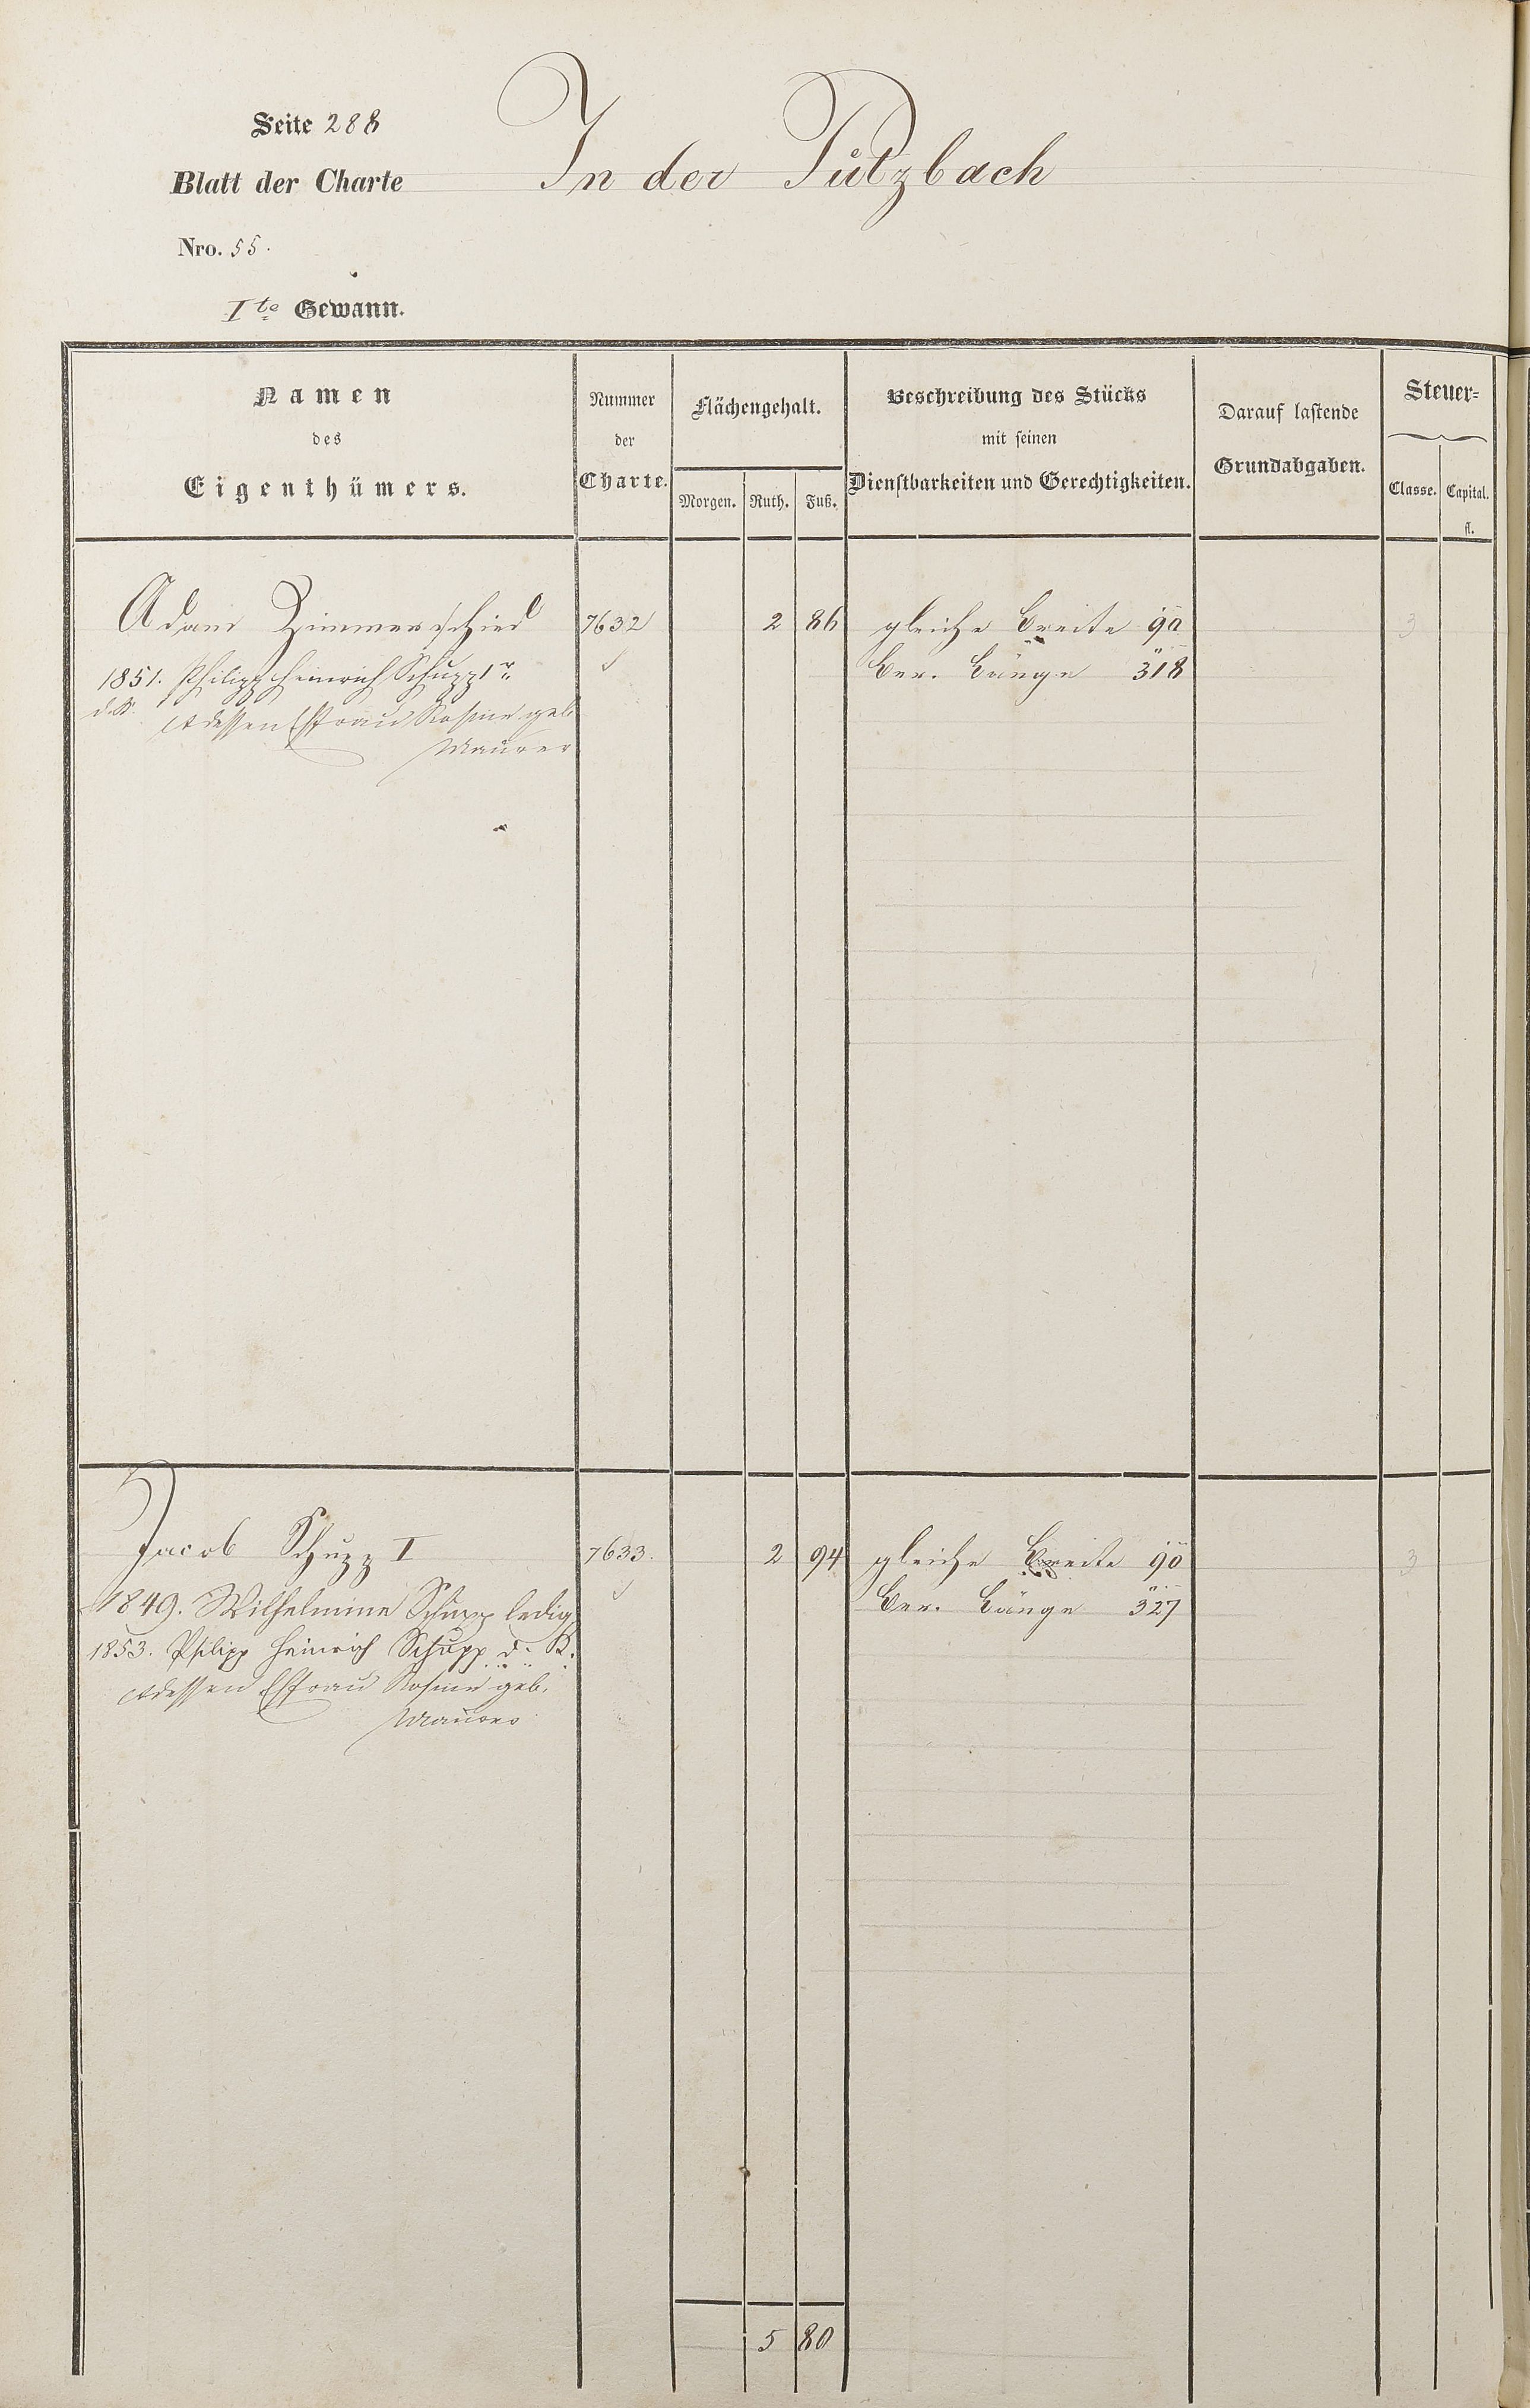 Seite 288
Blatt der Charte
In der Pützbach
Nro. 55.
Ite Gewann.
Namen
des
Eigenthümers.
Nummer
der
Charte.
Flächengehalt.
Morgen. Ruth. Fuß.
Beschreibung des Stücks
mit seinen
Dienstbarkeiten und Gerechtigkeiten.
Darauf lastende
Grundabgaben.
Steuer=
Classe. Capital.
fl.
Adam Zimmerschied 7632 2 86 gleiche Breite 90 3
1851. Philipp Heinrich Schupp 1r ber. Länge 318
d. K. & dessen Ehfrau Rosine geb
Maurer
Jacob Schupp I 7633. 2 94 gleiche Breite 90 3
1849. Wilhelmine Schupp ledig ber. Länge 327
1853. Philipp Heinrich Schupp d. K.
& dessen Ehfrau Rosine geb.
Maurer
5 80